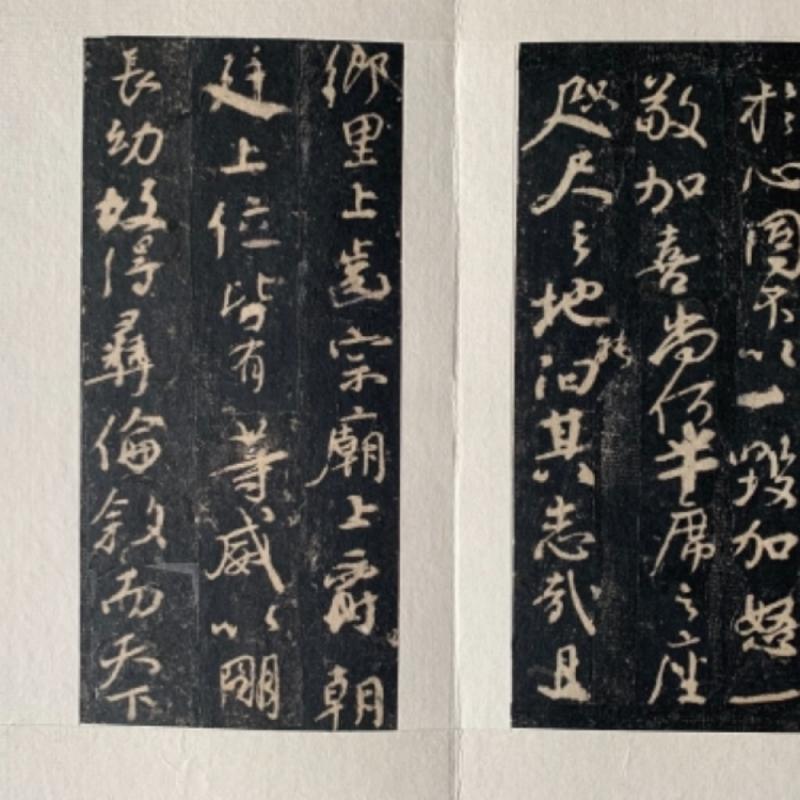 於心固不以一毀加怒一
敬加喜尚何半席之座
咫尺之地能汩其志哉且
鄉里上齒宗廟上爵朝
廷上位皆有等威以明
長幼故得彝倫敘而天下